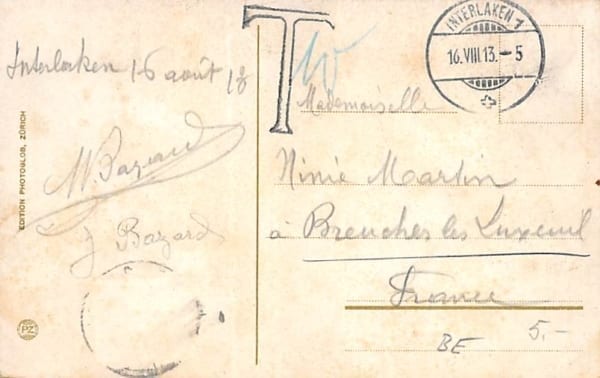 Interlaken 16 août 13
M. Bazard
J Bazard
EDITION PHOTOGLOB, ZÜRICH
PZ
T
10
INTERLAKEN 1
16. VIII 13. - 5
Mademoiselle
Ninie Martin
à Breuches les Luxeuil
France
BE
5.-